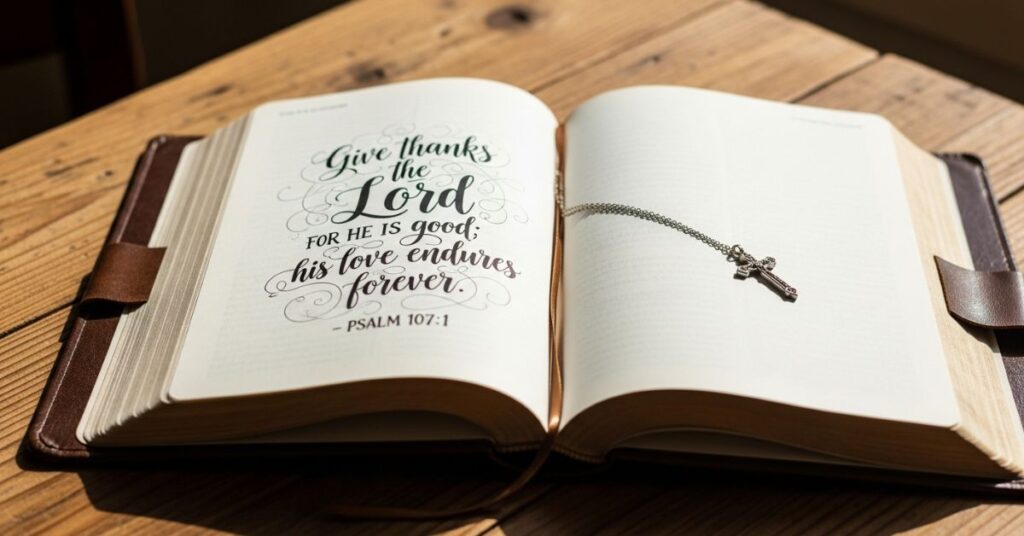 Give thanks
the
Lord
FOR HE IS good;
his love endures
forever.
– PSALM 107:1